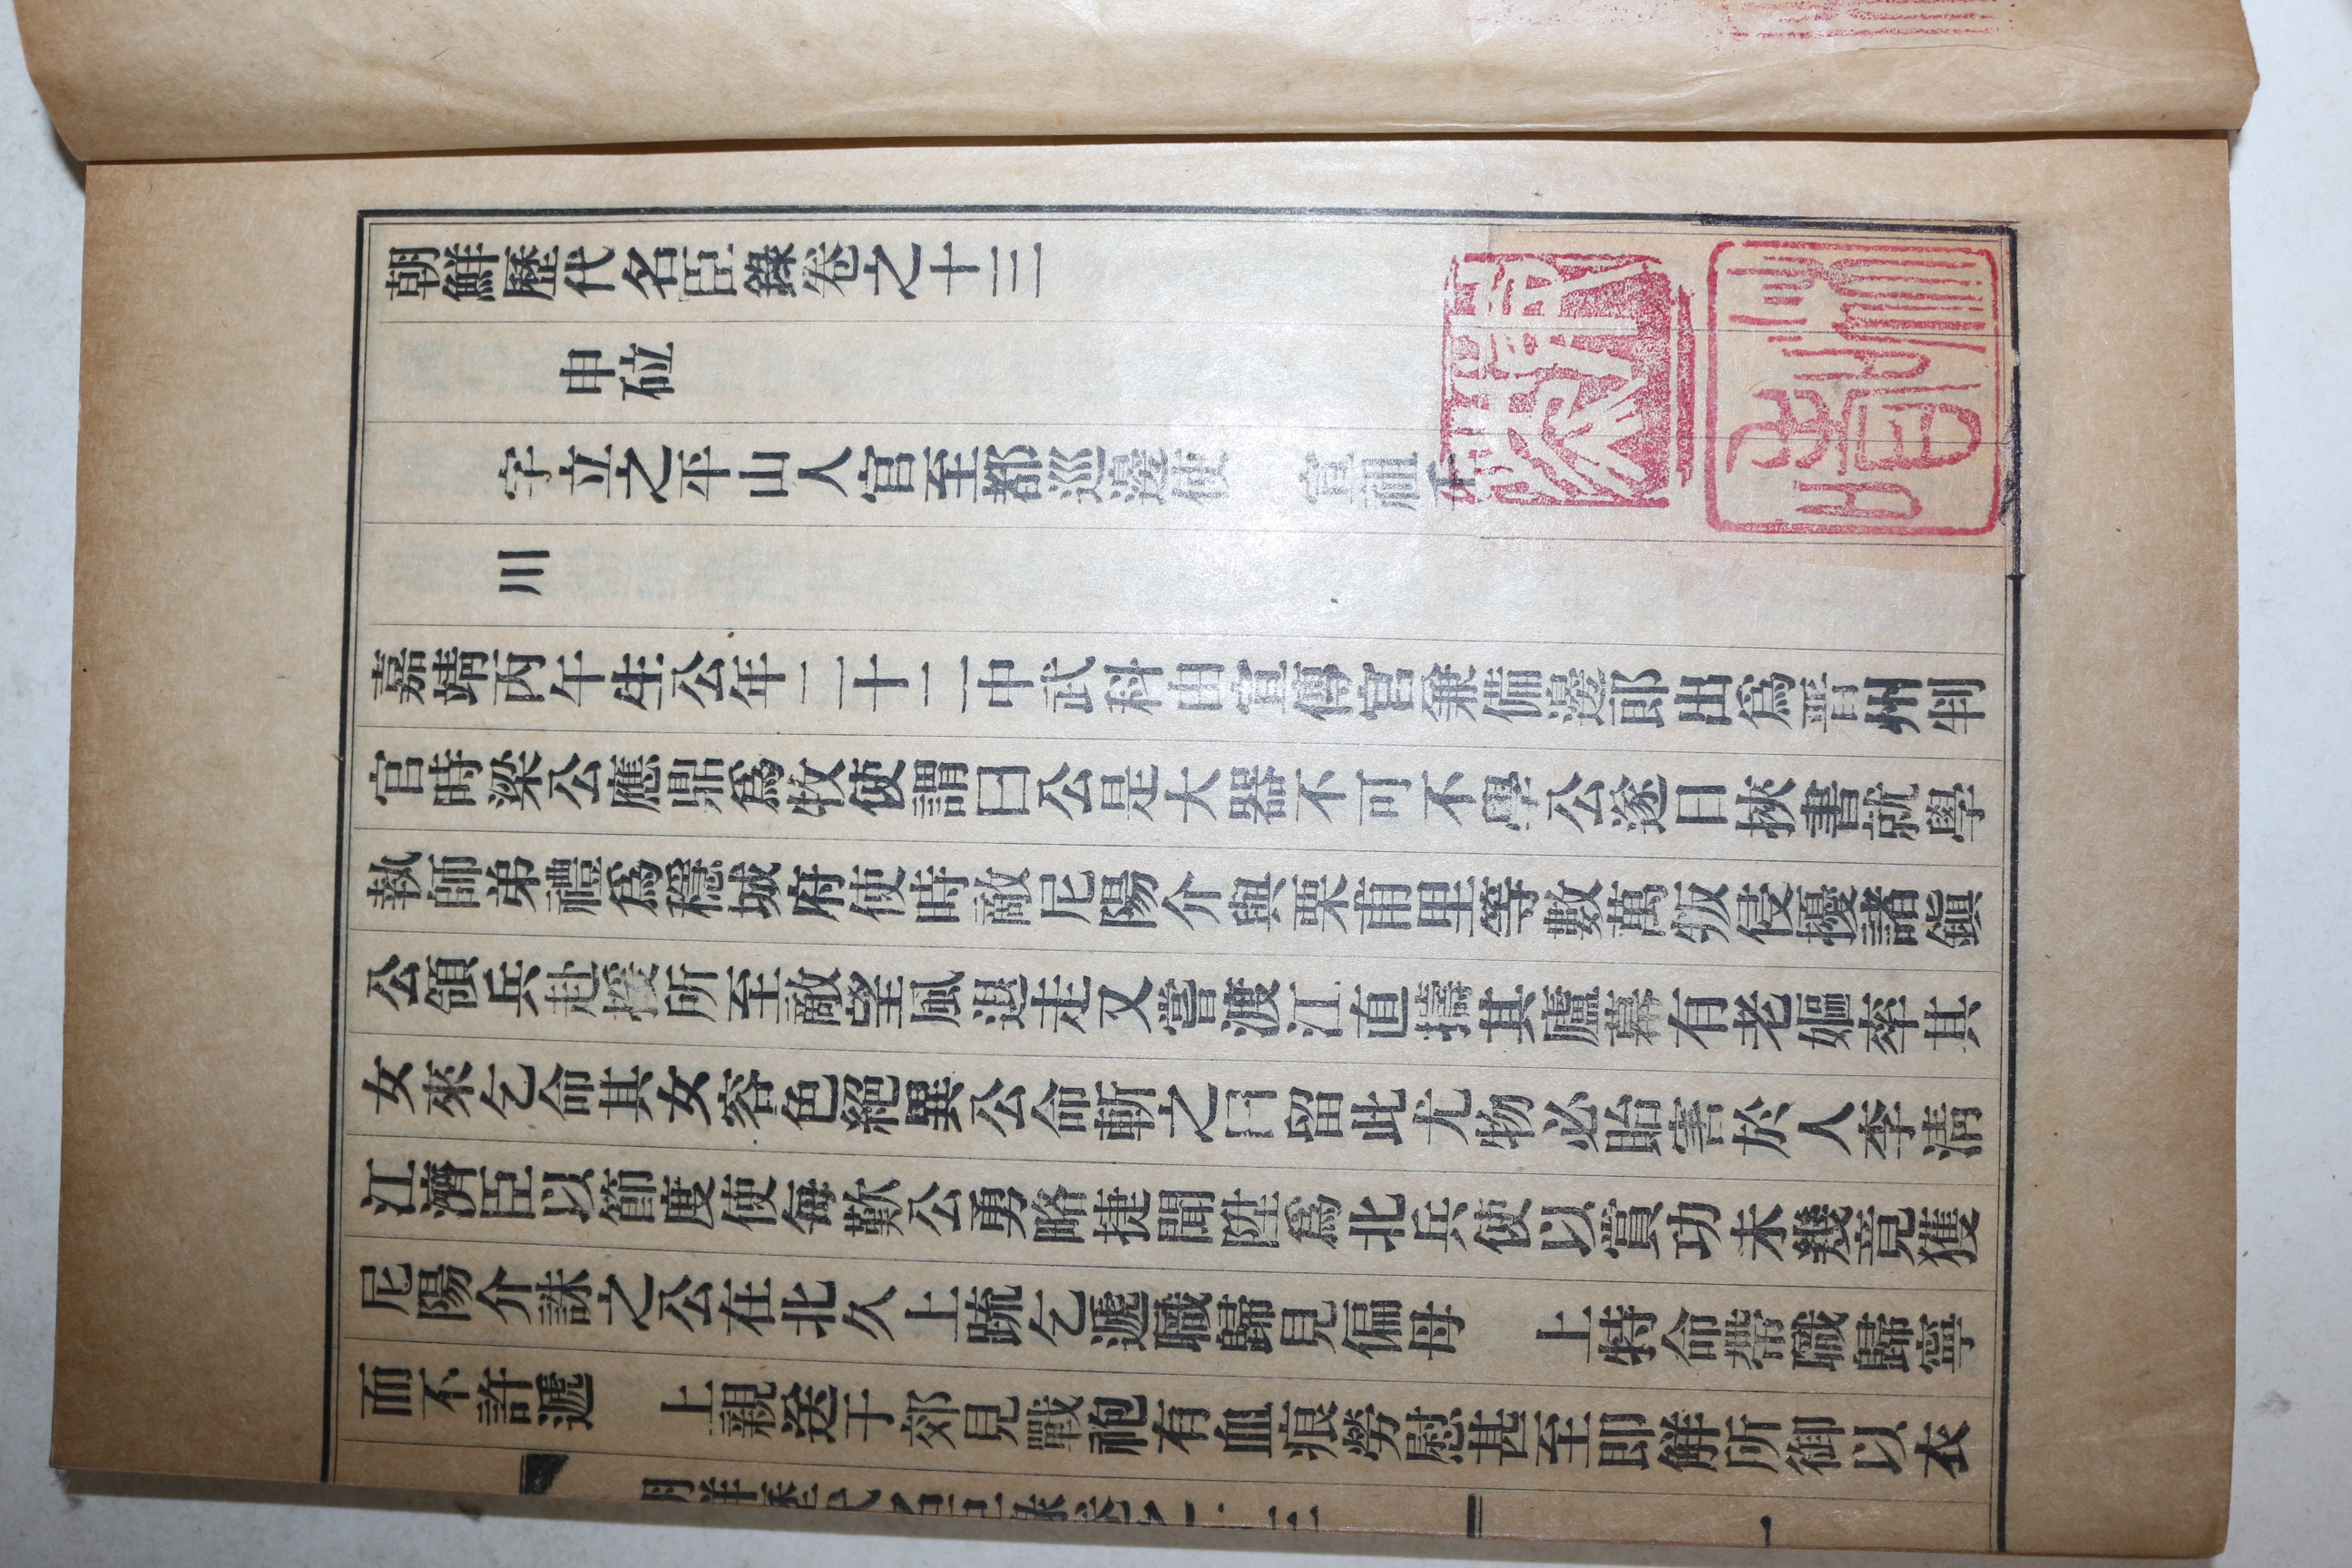 朝鮮歷代名臣錄卷之十三
申砬
字立之平山人官至都巡邊使
川
嘉靖丙午生公年二十二中武科由宣傳官兼備邊郎出爲晋州判
官時梁公應鼎爲牧使謂曰公是大器不可不學公遂日挾書就學
執師弟禮爲穩城府使時敵尼陽介與栗甫里等數萬叛侵擾諸鎭
公領兵赴援所至敵望風退走又嘗渡江直擣其廬幕有老嫗率其
女來乞命其女容色絕異公命斬之曰留此尤物必貽害於人李淸
江濟臣以節度使每歎公勇略捷聞陞爲北兵使以賞功未幾竟獲
尼陽介誅之公在北久上疏乞遞職歸見偏母 上特命帶職歸寧
而不許遞 上親送于郊見戰袍有血痕勞慰甚至卽解所御以衣